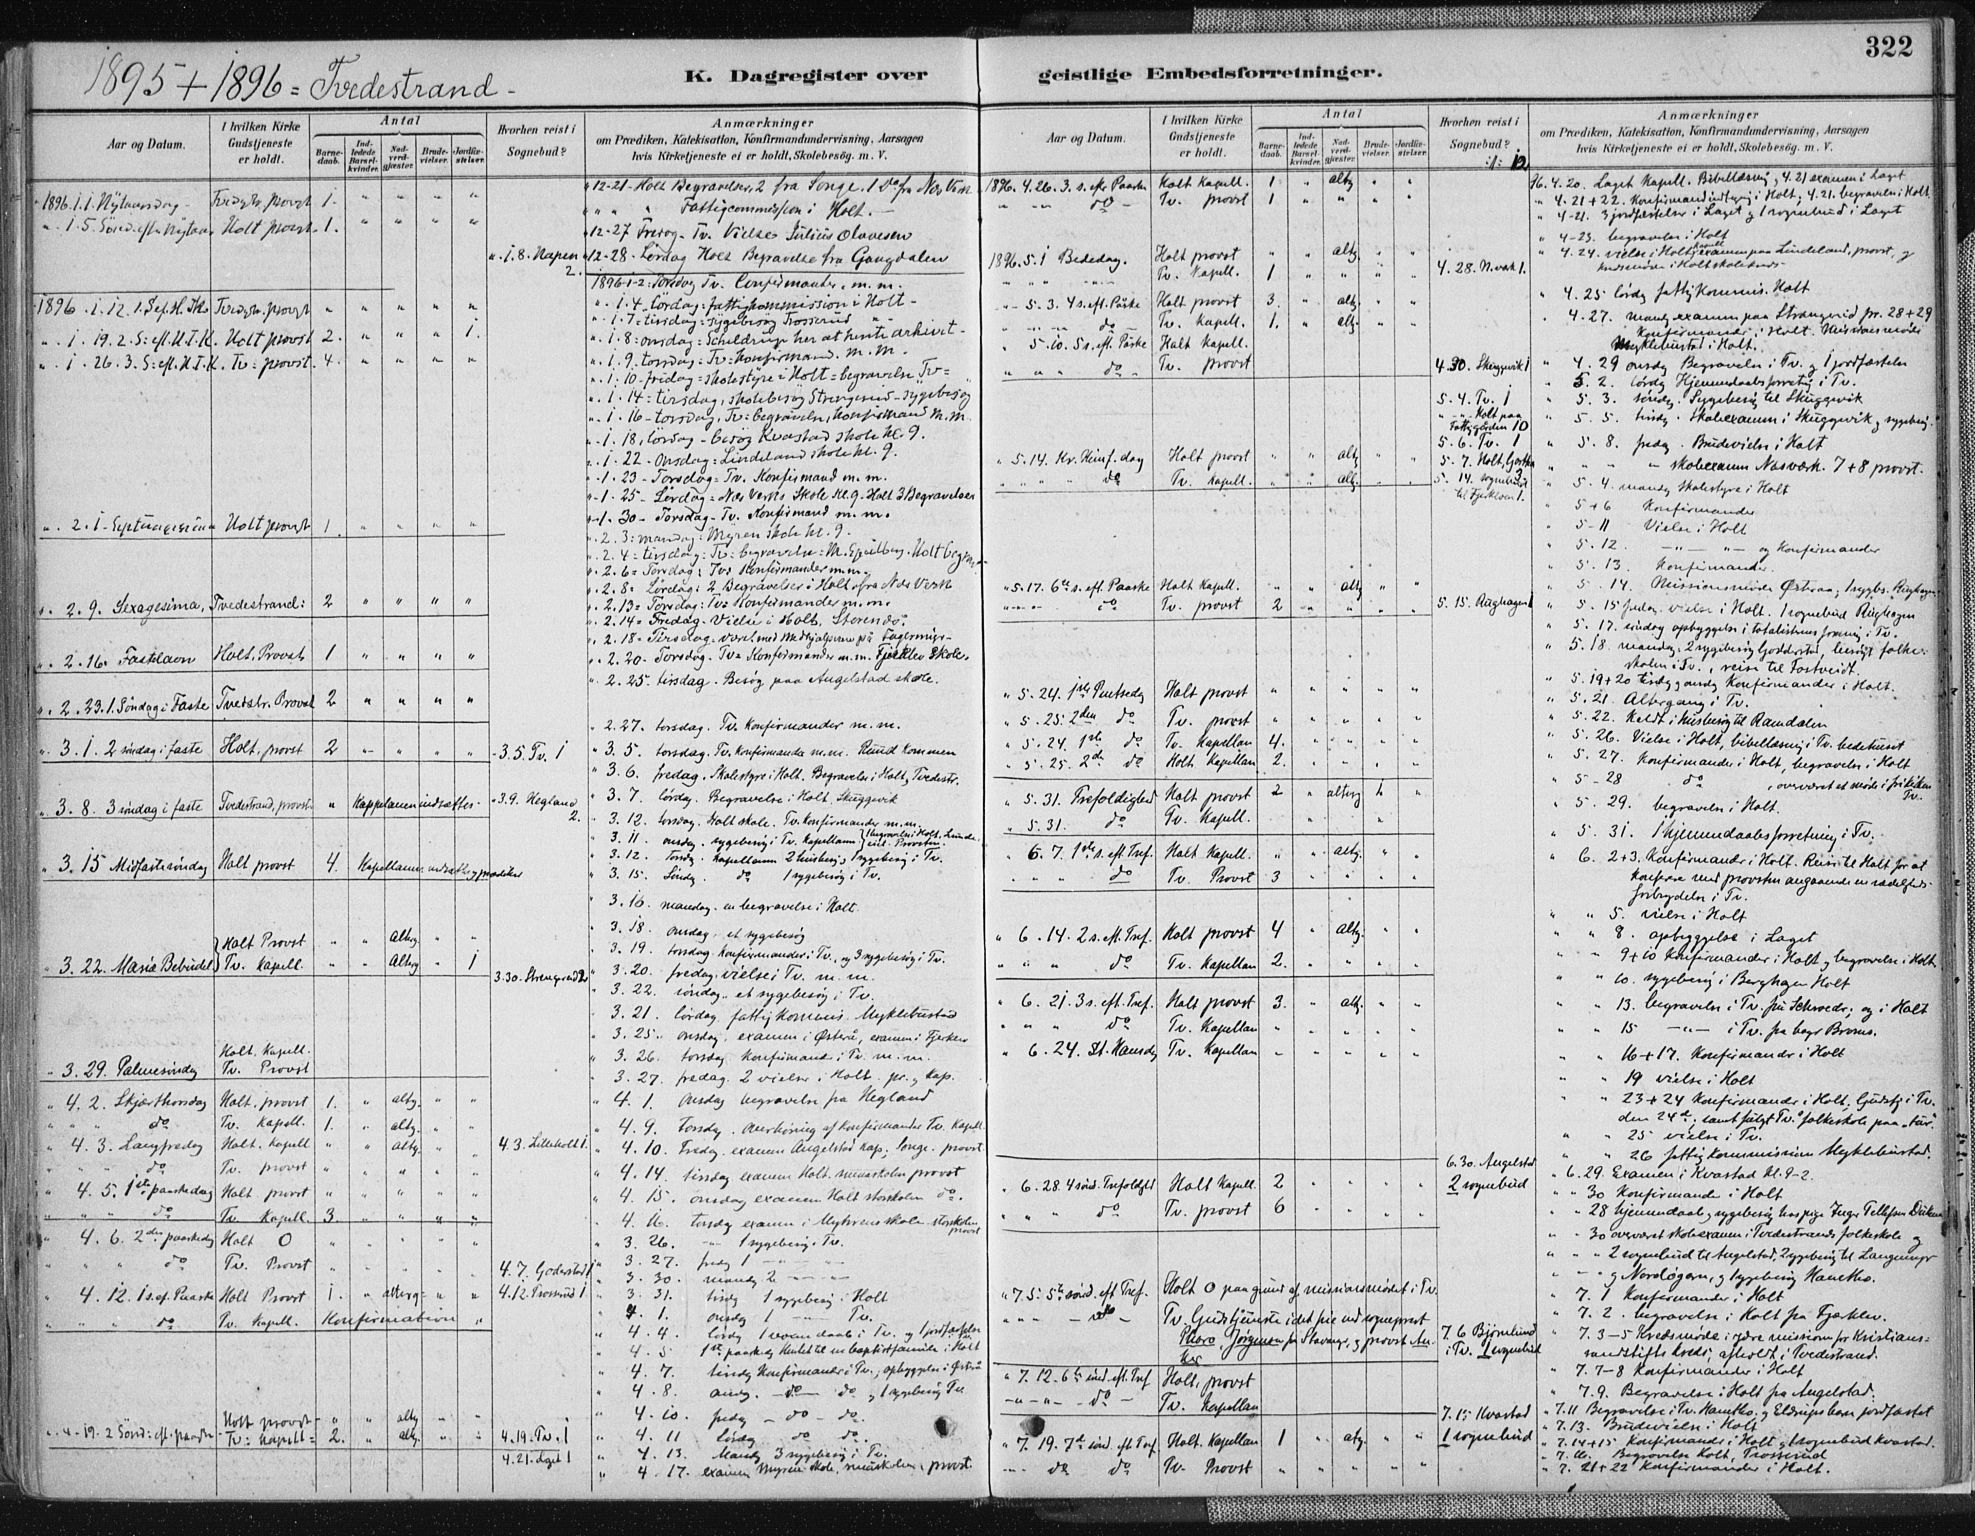 322
1895 + 1896 = Tvedestrand -
K. Dagregister over
geistlige Embedsforretninger.
Aar og Datum.
I hvilken Kirke Gudstjeneste er holdt.
Antal
Barne-daab.
Ind-ledede Barsel-kvinder.
Nad-verd-gjester.
Brude-vielser.
Jordfæ-stelser.
Hvorhen reist i Sognebud?
Anmærkninger
om Prædiken, Katekisation, Konfirmandundervisning, Aarsagen
hvis Kirketjeneste ei er holdt, Skolebesøg. m. V.
1896.1.1. Nytaarsdag - Tvedstr. provst 1.
" . 1. 5. Sønd. eft. Nytaar Holt provst. 1.
" .1.8. Napen 2.
1896 .1.12. 1. S. ef. H. 3 K. Tvedstr. provst
" . 1. 19. 2. S: eft. H. 3. K. Holt provst 2. 1.
" . 1. 26. 3. S: eft. H. 3. K. Tv: provst. 4.
" . 2. 1 - Septuagesima Holt provst 1.
" . 2. 9. Sexagesima, Tvedestrand: 2
" . 2. 16. Fastelavn Holt, Provst 1
" . 2. 23. 1. Søndag i Faste Tvedstr. Provst 2
" 3. 1. 2 søndag i faste Holt. provst 2 - 3.5. Tv. 1
" 3. 8. 3 søndag i faste Tvedestrand, provst Kappelanen indsættes - 3.9. Hegland 2.
" 3. 15 Midfastesøndag Holt provst 4. Kapellanen indsættes og prædiker
Holt Provst alterg.
" 3. 22. Mariæ Bebudel. Tv. Kapell. Alterg. 1
3.30. Strengereid 2
Holt. Kapell.
" 3. 29. Palmesøndag Tv. Provst
" 4. 2. Skjærthorsdag Holt. provst 1. altg.
" " " do Tv. Kapell. 1. altg.
" 4. 3. Langfredag Holt. Kapell altg. 4.3. Lilleholt 1.
" " " do Tv. provst
" 4. 5. 1ste paaskedag Holt. provst
" " " do Tv. Kapell. 3.
" 4. 6. 2den paaskedag Holt O
" " " do Tv. Provst 4.7. Goderstad 1
" 4. 12. 1 s. ef. Paaske Holt Provst 1. alterg. 4.12. Trosserud 1
" " " do Tv. Kapell. Konfirmation
" 4 - 19. 2 Sønd: eft. paaske Holt provst altg.
Tv: Kapell = 2. altg. 4.19. Tv. 1
4.21. Laget 1
" 12-21 - Holt Begravelser, 2 fra Songe. 1 do fra Næs Verk
" " " " Fattigcommission i Holt. -
" 12-27 Fredag. Tv. Vielse Julius Olavesen
" 12-28. Lørdag Holt Begravelse fra Gaugdalen
1896-1-2. Torsdag Tv. Confirmanter, m. m.
" . 1. 4. lørdag = fattigkommission i Holt -
" . 1. 7 = tirsdag = sygebesøg Trosserud "
" . 1. 8: onsdag = Scheldrup her at hente arkivet -
" . 1. 9. torsdag = Tv: Konfirmand. m. m.
" . 1. 10. fredag = skolestyre i Holt = begravelse Tv =
" . 1. 14 = tirsdag, skolebesøg Strengereid - sygebesøg
" . 1. 16 - torsdag, Tv = begravelse, konfirmand m. m.
" . 1. 18, lørdag - besøg Kvastad skole kl. 9.
" . 1. 22 - Onsdag = Lindeland skole kl. 9.
" . 1. 23 - Torsdag = Tv. Konfirmand m. m.
" . 1. 25 - Lørdag = Næs Verks Skole kl. 9. Holt 3 Begravelser
" - 1. 30 - Torsdag - Tv. Konfirmand m. m.
" . 2. 3: mandag = Myren skole kl. 9.
" . 2. 4 = tirsdag: Tv: begravelse = Holt
" . 2. 6 = Torsdag: Tv: Konfirmander m. m.
" . 2. 8 = Lørdag: 2 Begravelser i Holt fra Næs Verk
" . 2. 13 = Torsdag: Tv = Konfirmander m. m.
" . 2. 14 = Fredag. Vielse i Holt, Storenes.
" . 2. 18 = Tirsdag
" . 2. 20 - Torsdag. Tv = Konfirmander m. m. Fjerkleiv Skole.
" 2. 25. tirsdag. Besøg paa Angelstad skole.
" 2. 27. torsdag. Tv. Konfirmander m. m.
" 3. 5. torsdag. Tv. Konfirmander m. m. Ruud kommen
" 3. 6. fredag. Skolestyre i Holt. Begravelse i Holt, Tvedestr.
" 3. 7. lørdag. Begravelse i Holt, Skuggevik
" 3. 12. torsdag. Holt skole. Tv. Konfirmander m. m.
" 3. 11. onsdag. sygebesøg i Tv. Kapellanen
" 3. 12. torsdag. Kapellanen 2 husbesøg, 1 sygebesøg i Tv.
" 3. 15. Søndag. do 1 sygebesøg i Tv.
" 3. 16. mandag. en begravelse i Holt.
" 3. 18. onsdag. et sygebesøg
" 3. 19. torsdag. Konfirmander i Tv., og 3 sygebesøg i Tv.
" 3. 20. fredag, vielse i Tv. m. m.
" 3. 22. søndag. et sygebesøg i Tv.
" 3. 21. lørdag fattigkommis. Myklebustad
" 3. 25. onsdag. examen i Østerå, examen i Fjerkleiv
" 3. 26. torsdag Konfirmand. i Tv. m. m.
" 3. 27. fredag. 2 vielser i Holt. pr. og kap.
" 4. 1. Onsdag begravelse fra Hegland
" 4. 9. Torsdag. Overhøring af konfirmander Tv. Kapell.
" 4. 10. Fredag. examen Angelstad kap; Songe. provst
" 4. 14. tirsdag examen Holt. småskolen provst
" 4. 15. onsdag examen Holt storskolen do.
" 4. 16. torsdag examen i Myhrens skole storskolen provst
" 3. 26. 1 sygebesøg i Tv.
" 3. 27. fredg 1
" 3. 30. mandg 2
" 3. 31. tirsdg 1 sygebesøg i Holt
" 4. 1. onsdg 1 Tv.
" 4. 4. lørdg i Tv. og 1 jordfæstelse
" 4. 5 1ste paaskedg i Holt
" 4. 7. tirsdg Konfirmander i Tv., opbyggelse i Østerå
" 4. 8. onsdg. do do og 1 sygebesøg Tv.
" 4. 10. fredag - do - do.
" 4. 11 lørdg do do.
" 4. 13. Mandg 3 sygebesøg i Tv.
" 4. 17. examen Myrene skole, småskolen, provst
Aar og Datum.
I hvilken Kirke Gudstjeneste er holdt.
Antal
Barne-daab.
Ind-ledede Barsel-kvinder.
Nad-verd-gjester.
Brude-vielser.
Jordfæ-stelser.
Hvorhen reist i Sognebud?
Anmærkninger
om Prædiken, Katekisation, Konfirmandundervisning, Aarsagen
hvis Kirketjeneste ei er holdt, Skolebesøg. m. V.
1896. 4. 26. 3. s. eft. Paaske Holt Kapell. 1 altg
" " do - Tv. provst 1
1896. 5. 1 Bededag. Holt provst altg
Tv. Kapell. 1 4.28. N.verk 1.
" - 5. 3. 4 s. eft. Påske Holt provst 3. altg.
" " do - Tv. Kapell. 1. altg.
" 5. 10. 5 s. eft. Påske Holt Kapell.
" " " do - Tv. provst
4.30. Skuggevik 1
5. 4. Tv. 1
" - " - Holt paa Fattiggården 10
5. 6. Tv. 1
" 5. 14. Kr. Himf. dag Holt provst altg 5. 7. Holt,
" " " do Tv. Kapell. altg. 5. 14. sognebud til Fjerkleven 1.
" 5. 17. 6te s. eft. Paaske Holt Kapell. altg
do Tv. provst 2 5.15. Aughagen 1
" 5. 24. 1ste Pintsedg Holt provst
" 5. 25. 2den do Tv. provst
" 5. 24. 1ste do Tv. Kapellan 4.
" 5. 25. 2den do Holt Kapellan 2.
" 5. 31. Trefoldighed Holt provst 2 alterg
" 5. 31. do Tv. Kapell.
" 6. 7. 1ste s. eft. Tref. Holt Kapell. altg.
" " " do Tv. Provst 3
" 6. 14. 2 s. eft. Tref. Holt provst 4 altg.
" " " do Tv. Kapellan 2.
" 6. 21. 3 s. eft. Tref. Holt provst 3. altg.
" " " do Tv. Kapellan
" 6. 24. St. Hansdg Tv. Kapellan
6.30. Angelstad
" 6. 28. 4 sønd. Trefoldighd Holt Kapell. 2 2 sognebud
" " " do Tv. provst 6
" 7. 5. 5te sønd. eft. Tref. Holt O paa grund af missionsmødet i Tv.
do - Tv. Gudstjeneste i det frie ved sogneprest
Jørgensen fra Stavanger, og provst
7. 6 Bjørnlund i Tv. 1 sognebud
" 7. 12. 6te sønd. eft. Tref Holt, provst
do - Tv. Kapellan
7.15 Kvastad
1 sognebud
" 7. 19. 7de sønd. eft. Tref. Holt. Kapellan 1 altg.
do do Tv. Provst
96. 4. 20. Laget Kapell. Bibellæsning, 4. 21 examen i Laget
" 4. 21 + 22. Konfirmandindtegn i Holt; 4. 21. begravelse i Holt.
" 4 - 21. 3 jordfæstelser i Laget og 1 sognebud i Laget
" 4 - 23. begravelse i Holt
" 4. 24. vielse i Holt, examen paa Lindeland, provst, og
" 4. 25 lørdg fattigkommis. Holt
" 4. 27. mandg examen paa Strengereid pr. 28 + 29
Konfirmander i Holt. Missionsmøde
Myklebustad i Holt.
" 4. 29 onsdg Begravelse i Tv. og 1 jordfæstelse
" 5. 2. lørdg Hjemmedaabsforretng i Tv.
" 5. 3. søndg. Sygebesøg til Skuggevik
" 5. 5. tirsdg. Skoleexamen i Skuggevik og sygebesøg.
" 5. 8. fredag. Brudevielse i Holt
" " " skoleexamen Næsværk. 7 + 8 provst.
" 5. 4. mandg skolestyre i Holt
" 5 + 6 Konfirmander
" 5 - 11 Vielse i Holt
" 5. 12. - " - og Konfirmander
" 5. 13. Konfirmander.
" 5. 14. Missionsmøde Østeraa; 1 sygbs. Aughagen
" 5. 15 fredag. vielse i Holt. 1 sognebud Aughagen
" 5. 17. søndag opbyggelse i totalistens forening i Tv.
" 5. 18. mandag. 2 sygebesøg Godderstad, besøgt folke-
skolen i Tv., reise til Tostveidt.
" 5. 19 + 20 tirsdg og onsdg Konfirmander i Holt.
" 5. 21. Altergang i Tv.
" 5. 22. Kaldt i husbesøg til Ramdalen
" 5. 26. Vielse i Holt, bibellæsning i Tv. bedehuset
" 5. 27. Konfirmander i Holt, begravelse i Holt
" 5 - 28 do , overværet et møde i frikirken Tv.
" 5. 29. begravelse i Holt.
" 5. 31. 1 hjemmedaabsforretning i Tv.
" 6. 2 + 3. Konfirmander i Holt. Reise til Holt for at
konferere med provsten angaaende en sædeligheds-
forbrydelse i Tv.
" " 5. vielse i Holt
" " 8. opbyggelse i Laget
" " 9 + 10 Konfirmander i Holt og begravelse i Holt
" " 10. sygebesøg i Berghagen Holt
" " 13. begravelse i Tv. fru Schroeder; og i Holt
" " 15 - " - i Tv. fra
" " 16 + 17. Konfirmander i Holt
" " 19 vielse i Holt
" " 23 + 24 Konfirmander i Holt, Gudstj. i Tv.
den 24de, samt fulgt Tv.s folkeskole paa "tur".
" " 25 vielse i Tv.
" " 26 fattigkommission Myklebustad.
" 6. 29. Examen i Kvastad kl. 9-2.
" " 30 Konfirmander i Holt
" " 28 hjemmedaab og sygebesøg hos pige Inger Tellefsen
" " 30 overværet skoleexamen i Tvedestrands folkeskole og
" " 2 sognebud til Angelstad, 2 sygebesøg til
" " og Nordågern, og 1 sygebesøg
" 7. 1 Konfirmander i Holt
" 7. 2. begravelse i Holt fra Fjækleiv.
" 7. 3 - 5 Kredsmøde i ydre missionen for Kristians-
sandstifts kreds, afholdt i Tvedestrand.
" 7. 7-8 Konfirmander i Holt
" 7. 9. Begravelse i Holt fra Angelstad.
" 7. 11 Begravelse i Tv. jordfæstet
" 7. 13. Brudevielse i Holt
" 7. 14 + 15 Konfirmander i Holt og 1 sognebud Kvastad.
" 7. 16. Begravelse Holt, Trosserud
" 7. 21 + 22 Konfirmander i Holt.